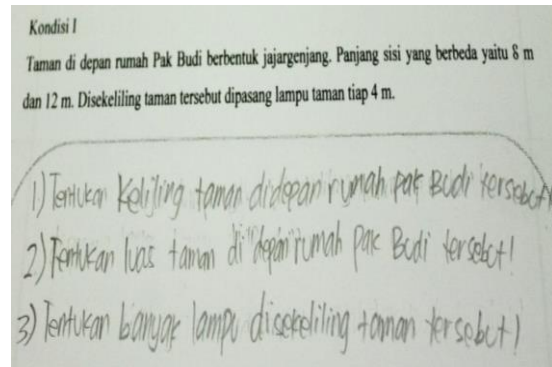 Kondisi I
Taman di depan rumah Pak Budi berbentuk jajargenjang. Panjang sisi yang berbeda yaitu 8 m
dan 12 m. Disekeliling taman tersebut dipasang lampu taman tiap 4 m.
1) Tentukan Keliling taman didepan rumah pak Budi tersebut!
2) Tentukan luas taman di depan rumah pak Budi tersebut!
3) Tentukan banyak lampu disekeliling taman tersebut!